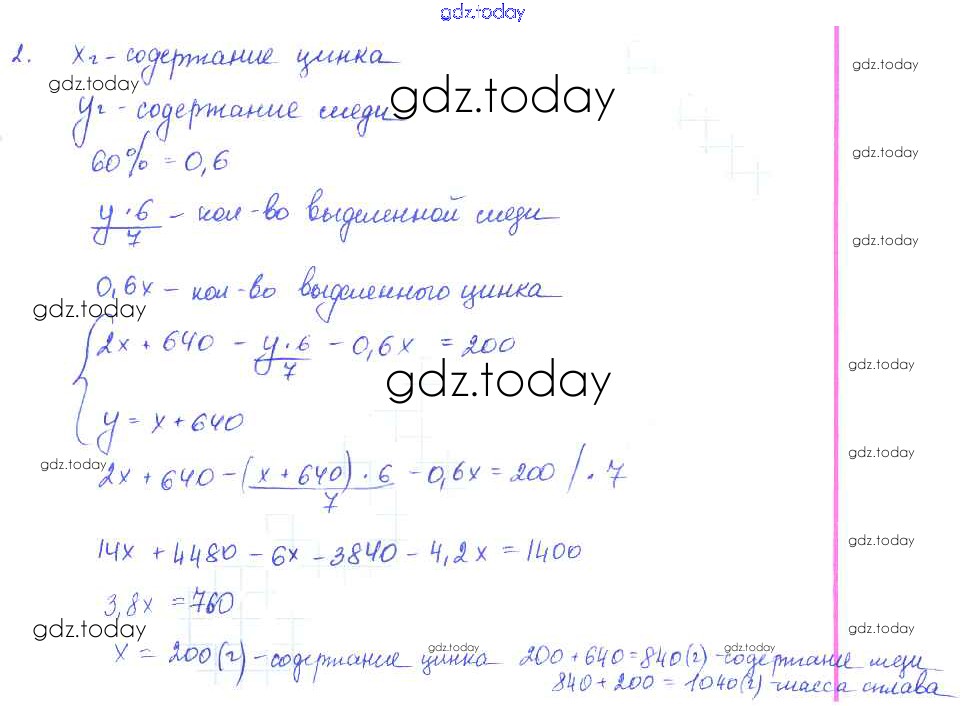 gdz.today
2. xг - содержание цинка
gdz.today
gdz.today
gdz.today
yг - содержание меди
60% = 0,6
gdz.today
y·6/7 - кол-во выделенной меди
gdz.today
0,6x - кол-во выделенного цинка
gdz.today
2x + 640 - y·6/7 - 0,6x = 200
gdz.today
gdz.today
y = x + 640
gdz.today
gdz.today
2x + 640 - (x + 640)·6/7 - 0,6x = 200 /·7
14x + 4480 - 6x - 3840 - 4,2x = 1400
gdz.today
3,8x = 760
gdz.today
gdz.today
x = 200(г) - содержание цинка 200 + 640 = 840(г) - содержание меди
gdz.today
gdz.today
840 + 200 = 1040(г) - масса сплава